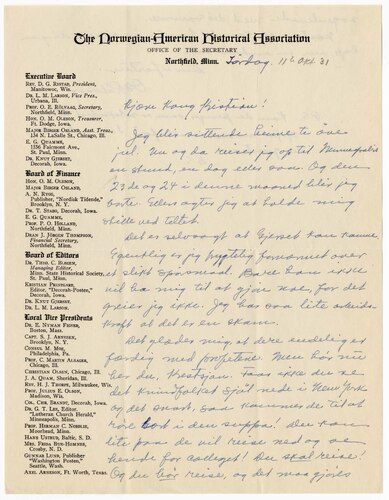 The Norwegian-American Historical Association
OFFICE OF THE SECRETARY
Northfield, Minn. Tirsdag. 11te Okt. 31
Executive Board
REV. D. G. RISTAD, President,
Manitowoc, Wis.
DR. L. M. LARSON, Vice Pres.,
Urbana, Ill.
PROF. O. E. RÖLVAAG, Secretary,
Northfield, Minn.
HON. O. M. OLESON, Treasurer,
Ft. Dodge, Iowa.
MAJOR BIRGER OSLAND, Asst. Treas.,
134 N. LaSalle St., Chicago, Ill.
E. G. QUAMME,
1356 Fairmont Ave.,
St. Paul, Minn.
DR. KNUT GJERSET,
Decorah, Iowa.
Board of Finance
HON. O. M. OLESON,
MAJOR BIRGER OSLAND,
A. N. RYGG,
Publisher, "Nordisk Tidende,"
Brooklyn, N. Y.
DR. T. STABO, Decorah, Iowa.
E. G. QUAMME,
St. Paul, Minn.
PROF. P. O. HOLLAND,
Northfield, Minn.
DEAN J. JÖRGEN THOMPSON,
Financial Secretary,
Northfield, Minn.
Board of Editors
DR. THEO. C. BLEGEN,
Managing Editor,
Minn. State Historical Society,
St. Paul, Minn.
KRISTIAN PRESTGARD,
Editor, "Decorah-Posten,"
Decorah, Iowa.
DR. KNUT GJERSET,
DR. L. M. LARSON.
Local Vice Presidents
DR. E. NYMAN FIGVED,
Boston, Mass.
CAPT. S. J. ARNESEN,
Brooklyn, N. Y.
CONSUL M. MOE,
Philadelphia, Pa.
PROF. C. MARTIN ALSAGER,
Chicago, Ill.
CHRISTIAN OLSEN, Chicago, Ill.
J. A. QUAM, Sheridan, Ill.
REV. H. J. THORPE, Milwaukee, Wis.
PROF. JULIUS E. OLSON,
Madison, Wis.
COL. CHR. BRANDT, Decorah, Iowa.
DR. G. T. LEE, Editor,
"Lutheran Church Herald,"
Minneapolis, Minn.
PROF. HERMAN C. NORDLIE,
Moorhead, Minn.
HANS USTRUD, Baltic, S. D.
MRS. FREDA BUE-HOMNES,
Crosby, N. D.
GUNNAR LUND, Publisher
"Washington Posten,"
Seattle, Wash.
AXEL ARNESON, Ft. Worth, Texas.
Kjære Kong Kristian!
Jeg blir sittende hjemme te over
jul. Nu og da reiser jeg op til Minneapolis
en stund, en dag eller saa. Og den
23de og 24 i denne maaned blir jeg
borte. Ellers agter jeg at holde mig
stille ved teltet.
Det er selvsagt at Gjerset kan komme.
Egentlig er jeg frygtelig fornærmet over
et slikt spørsmaal. Bare han ikke
vil ha mig til at gjøre noe, for det
greier jeg ikke. Jeg har saa lite arbeids-
kraft at det er en skam.
Det glæder mig at dere endelig er
færdig med profetene. Men hør nu
her du Kristian
det kvindfolket nede i New York
og det snart, saa kommer de til at
i den suppa. Den kan
lite paa de vil reise ned og se
hende for college! Du skal reise!
Og du bør reise, og det maa gjøres